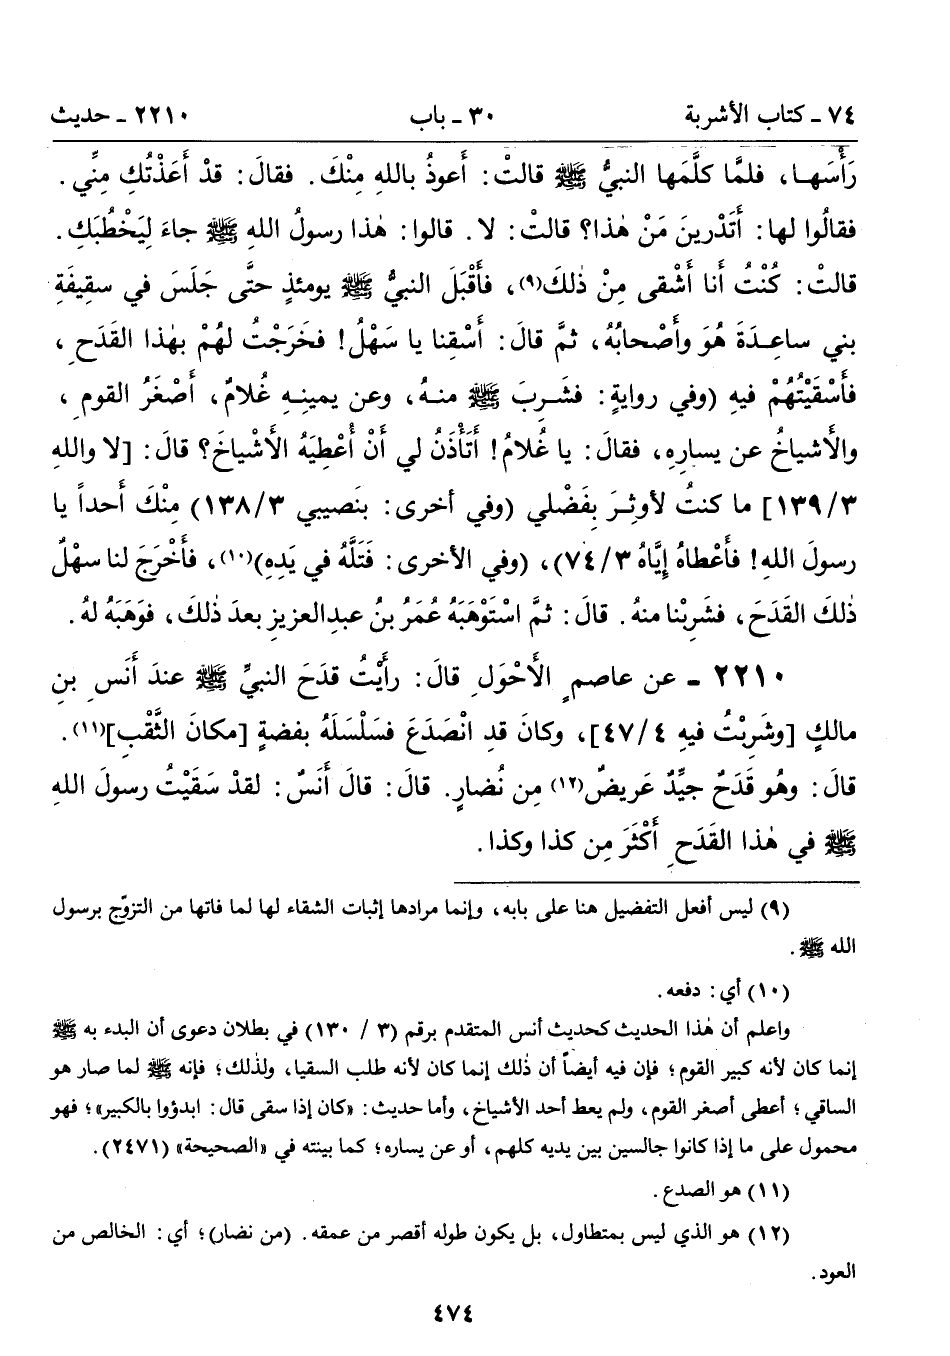 ٧٤ ـ كتاب الأشربة ٣٠ ـ باب ٢٢١٠ ـ حديث
رَأْسَها، فلمَّا كلَّمَها النبيُّ ﷺ قالتْ: أَعوذُ باللهِ مِنْكَ. فقالَ: قدْ أَعَذْتُكِ مِنِّي.
فقالُوا لها: أَتَدْرِينَ مَنْ هٰذا؟ قالتْ: لا. قالوا: هٰذا رسولُ اللهِ ﷺ جاءَ لِيَخْطُبَكِ.
قالتْ: كُنْتُ أَنا أَشْقى مِنْ ذٰلكَ(٩)، فأَقْبَلَ النبيُّ ﷺ يومئذٍ حتَّى جَلَسَ في سقِيفَةِ
بني ساعِدَةَ هُوَ وأَصْحابُهُ، ثمَّ قالَ: أَسْقِنا يا سَهْلُ! فخَرَجْتُ لهُمْ بهٰذا القَدَحِ،
فأَسْقَيْتُهُمْ فيهِ (وفي روايةٍ: فشَرِبَ ﷺ منهُ، وعن يمينِهِ غُلامٌ، أَصْغَرُ القومِ،
والأَشياخُ عن يسارِهِ، فقالَ: يا غُلامُ! أَتَأْذَنُ لي أَنْ أُعْطِيَهُ الأَشْياخَ؟ قالَ: [لا واللهِ
١٣٩/٣] ما كنتُ لأوثِرَ بِفَضْلي (وفي أخرى: بنَصيبي ١٣٨/٣) مِنْكَ أَحداً يا
رسولَ اللهِ! فأَعْطاهُ إِيَّاهُ ٧٤/٣)، (وفي الأخرى: فَتَلَّهُ في يَدِهِ)(١٠)، فأَخْرَجَ لنا سهْلٌ
ذٰلكَ القَدَحَ، فشَرِبْنا منهُ. قالَ: ثمَّ اسْتَوْهَبَهُ عُمَرُ بنُ عبدِالعزيزِ بعدَ ذٰلكَ، فوَهَبَهُ لهُ.
٢٢١٠ ـ عن عاصمٍ الأَحْوَلِ قالَ: رأَيْتُ قدَحَ النبيِّ ﷺ عندَ أَنَسِ بنِ
مالكٍ [وشَرِبْتُ فيهِ ٤٧/٤]، وكانَ قدِ انْصَدَعَ فسَلْسَلَهُ بفضةٍ [مكانَ الثَّقْبِ](١١).
قالَ: وهُو قدَحٌ جيِّدٌ عَريضٌ(١٢) مِن نُضارٍ. قالَ: قالَ أَنَسٌ: لقدْ سَقَيْتُ رسولَ اللهِ
ﷺ في هٰذا القَدَحِ أَكْثَرَ مِن كذا وكذا.
(٩) ليس أفعل التفضيل هنا على بابه، وإنما مرادها إثبات الشقاء لها لما فاتها من التزوّج برسول
الله ﷺ.
(١٠) أي: دفعه.
واعلم أن هٰذا الحديث كحديث أنس المتقدم برقم (٣ / ١٣٠) في بطلان دعوى أن البدء به ﷺ
إنما كان لأنه كبير القوم؛ فإن فيه أيضاً أن ذٰلك إنما كان لأنه طلب السقيا، ولذٰلك؛ فإنه ﷺ لما صار هو
الساقي؛ أعطى أصغر القوم، ولم يعط أحد الأشياخ، وأما حديث: «كان إذا سقى قال: ابدؤوا بالكبير»؛ فهو
محمول على ما إذا كانوا جالسين بين يديه كلهم، أو عن يساره؛ كما بينته في «الصحيحة» (٢٤٧١).
(١١) هو الصدع.
(١٢) هو الذي ليس بمتطاول، بل يكون طوله أقصر من عمقه. (من نضار)؛ أي: الخالص من
العود.
٤٧٤